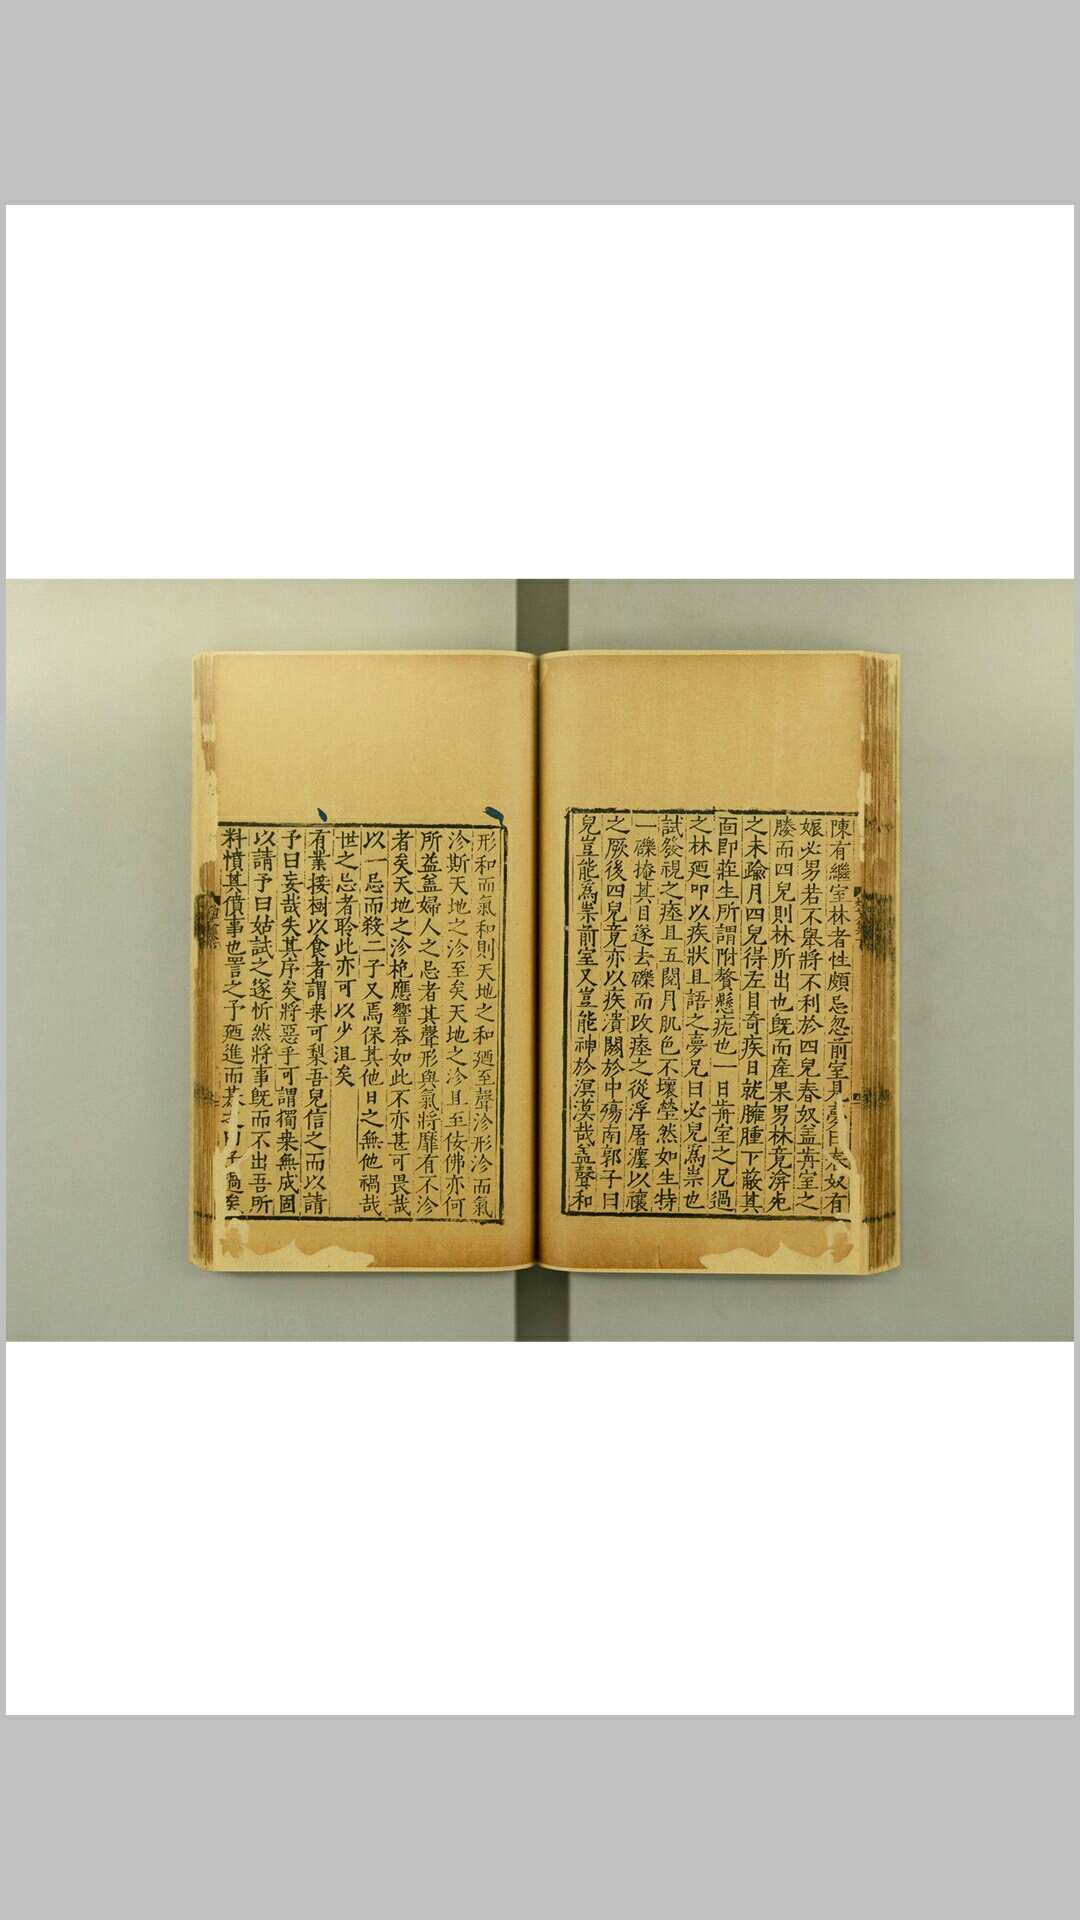 陳有繼室林者性頗忌忽前室見夢曰春奴有
娠必男若不舉將不利於四兒春奴盖前室之
媵而四兒則林所出也既而產果男林竟溺死
之未踰月四兒得左目奇疾日就臃腫下蔽其
面即莊生所謂附贅懸疣也一日前室之兄過
之林廼叩以疾狀且語之夢兄曰必兒爲祟也
試發視之瘞且五閱月肌色不壞瑩然如生特
一礫掩其目遂去礫而改瘞之從浮屠灋以禳
之厥後四兒竟亦以疾潰闕於中殤南郭子曰
兒豈能爲祟前室又豈能神於溟漠哉盖聲和
形和而氣和則天地之和廼至聲沴形沴而氣
沴斯天地之沴至矣天地之沴且至佞佛亦何
所益盖婦人之忌者其聲形與氣將靡有不沴
者矣天地之沴桴應響荅如此不亦甚可畏哉
以一忌而殺二子又焉保其他日之無他禍哉
世之忌者聆此亦可以少沮矣
有業接樹以食者謂桒可梨吾兒信之而以請
予曰妄哉失其序矣將惡乎可謂獨桒無成固
以請予曰姑試之遂忻然將事既而不出吾所
料憤其僨事也詈之予廼進而 之曰子過矣